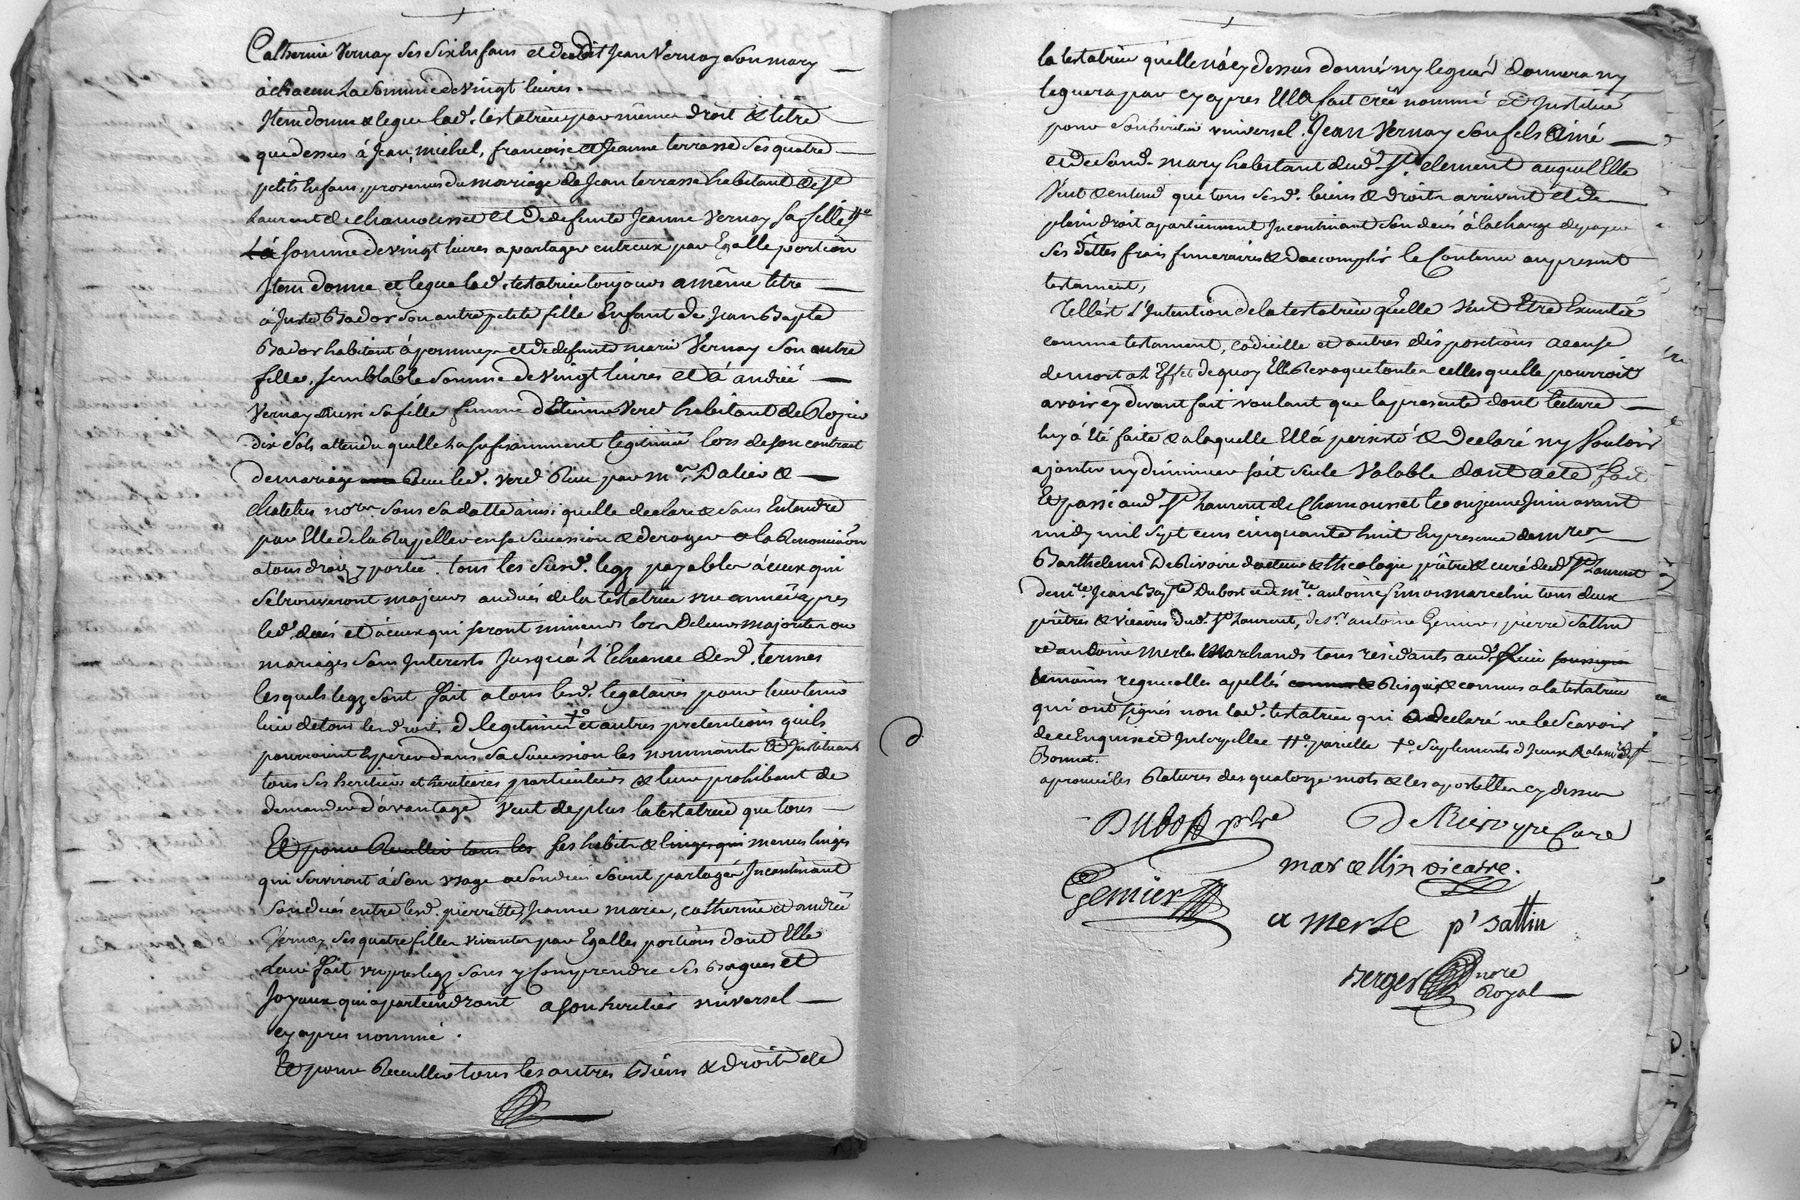 Catherine Vernay ses six Enfans et dudit Jean Vernay son mary
à chacun La somme de vingt livres.
Item donne & legue lad. testatrice par même droit & titre
que dessus à Jean, michel, françoise et Jeanne terrasse ses quatre
petits Enfans, provenus du mariage de Jean terrasse habitant de St
Laurent de chamousset et de defunte Jeanne Vernay sa fille #e
La somme de vingt livres a partager entreux par Egalle portion
Item donne et legue lad. testatrice toujours a même titre
à Juste Bador son autre petite fille Enfant de Jean Bapte
Bador habitant à pommeys et de defunte marie Vernay son autre
fille, semblable somme de vingt livres et à andrée
Vernay aussi sa fille femme d'Etienne Verd habitant de
dix sols attendu quelle La sufisamment legitimée lors de son contract
de mariage avec led. Verd Reçu par me Dalier &
chatelus nores sans sa datte ainsi quelle declare & sans Entendre
par Elle de la Rapeller en sa succession & deroger a la Renonciaõn
a tous droits y portée. tous les susd. legz payables à ceux qui
se trouveront majeurs au deces de la testatrice une année apres
led. deces et à ceux qui seront mineurs lors de leurs majorités ou
mariages sans Interests Jusquà L'Echeance desd. termes
lesquels legz sont fait a tous lesd. legataires pour leur tenir
lieu de tous les droits de legitime +o et autres pretentions quils
pourroient Esperer dans sa succession les nommants & Instituant
tous ses heritiers et heritieres particuliers & leur prohibant de
demander d'avantage veut de plus la testatrice que tous
Et pour Recueillir tous les ses habits & linges qui menus linges
qui serviront à son usage a son deces soient partagés Incontinant
son deces entre lesd. pierrette, Jeanne marie, catherine et andrée
Vernay ses quatre filles vivantes par Egalles portions dont Elle
leur fait un prelegz sans y Comprendre ses Bagues et
Joyaux qui apartiendront a son heritier universel
cy apres nommé.
Et pour Recueillir tous les autres Biens & droits de
la testatrice quelle n'a cy dessus donnés ny legués donnera ny
leguera par cy apres Elle a fait créé nommé et Institué
pour son heritier universel Jean Vernay son fils ainé
et de sond. mary habitant dud. St. clement auquel Elle
Veut & entend que tous sesd. biens & droits arrivent et de
plein droit apartiennent Incontinant son deces à la charge de payer
ses dettes frais funeraires & daccomplir le Contenu au present
testament,
Telle est L'Intention de la testatrice quElle veut Etre Executée
comme testament, codicille et autres dispositions a cause
de mort a L'Effet de quoy Elle Revoque toutes celles quelle pourroit
avoir cy devant fait voulant que la presente dont lecture
luy à été faite & a laquelle Ell'a persisté & declaré ny Vouloir
ajouter ny diminuer soit seule Valable dont acte fait
Et passé aud. St Laurent de Chamousset le onzieme Juin avant
midy mil sept cens cinquante huit En presence de mre
Barthelemi DeRivoire docteur & theologie prêtre & curé dud. St Laurent
de mre. Jean Bapte Dubost et de mre. antoine simon marcelin tous deux
prêtres & vicaires dud. St Laurent, de sr. antoine Genier, pierre Sattin
et antoine merle Marchands tous residants aud. lieu soussignés
temoins requis elles apellés connus & Requis & connus a la testatrice
qui ont signés non lad. testatrice qui a declaré ne le Scavoir
de ce Enquise et Interpellée #o. pareille +o. suplements d'Iceux
Bonnet.
aprouvé les Ratures des quatorze mots & les apostilles cy dessus
Dubost pbre DeRivoyre Curé
marcellin vicaire.
Genier
a merle p' Sattin
Berger nore
Royal